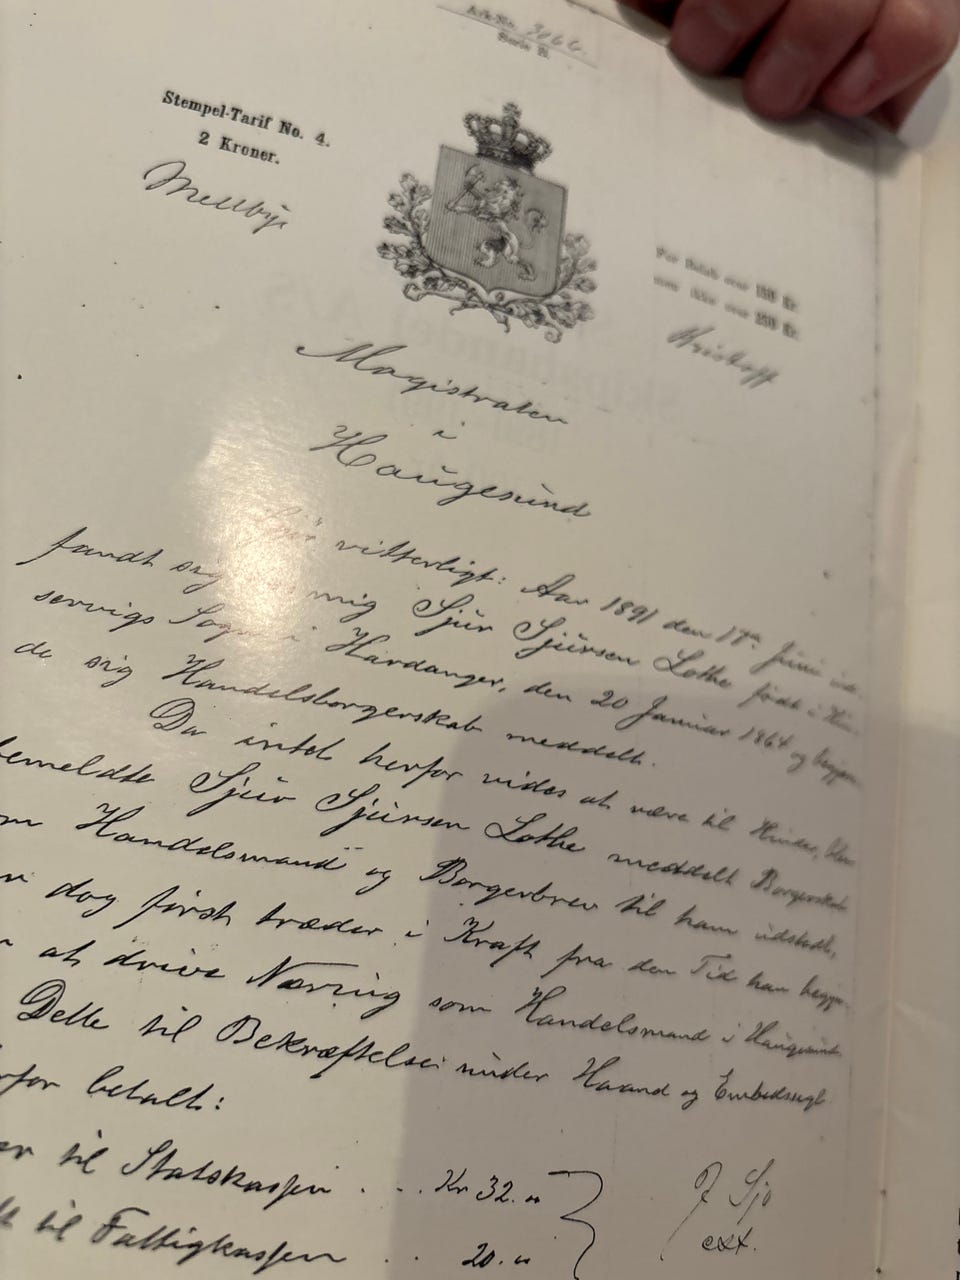 Ark-No. 3066.
Serie B.
Stempel-Tarif No. 4.
2 Kroner.
Mellbye
For Beløb over 150 Kr.
men ikke over 250 Kr.
Magistraten
i
Haugesund
Gjør vitterligt: Aar 1891 den 17de Juni ind-
fandt sig for mig Sjur Sjursen Lothe født i Kin-
servigs Sogn i Hardanger, den 20 Januar 1864 og begjær-
de sig Handelsborgerskab meddelt.
Da intet herfor vides at være til Hinder, blev
bemeldte Sjur Sjursen Lothe meddelt Borgerskab
som Handelsmand og Borgerbrev til ham udstedt,
dog først træder i Kraft fra den Tid han begyn-
at drive Næring som Handelsmand i Haugesund
Dette til Bekræftelse under Haand og Embedssegl.
betalt:
til Statskassen . . . Kr 32. "
til Fattigkassen . . 20. "
J Sjo
cst.